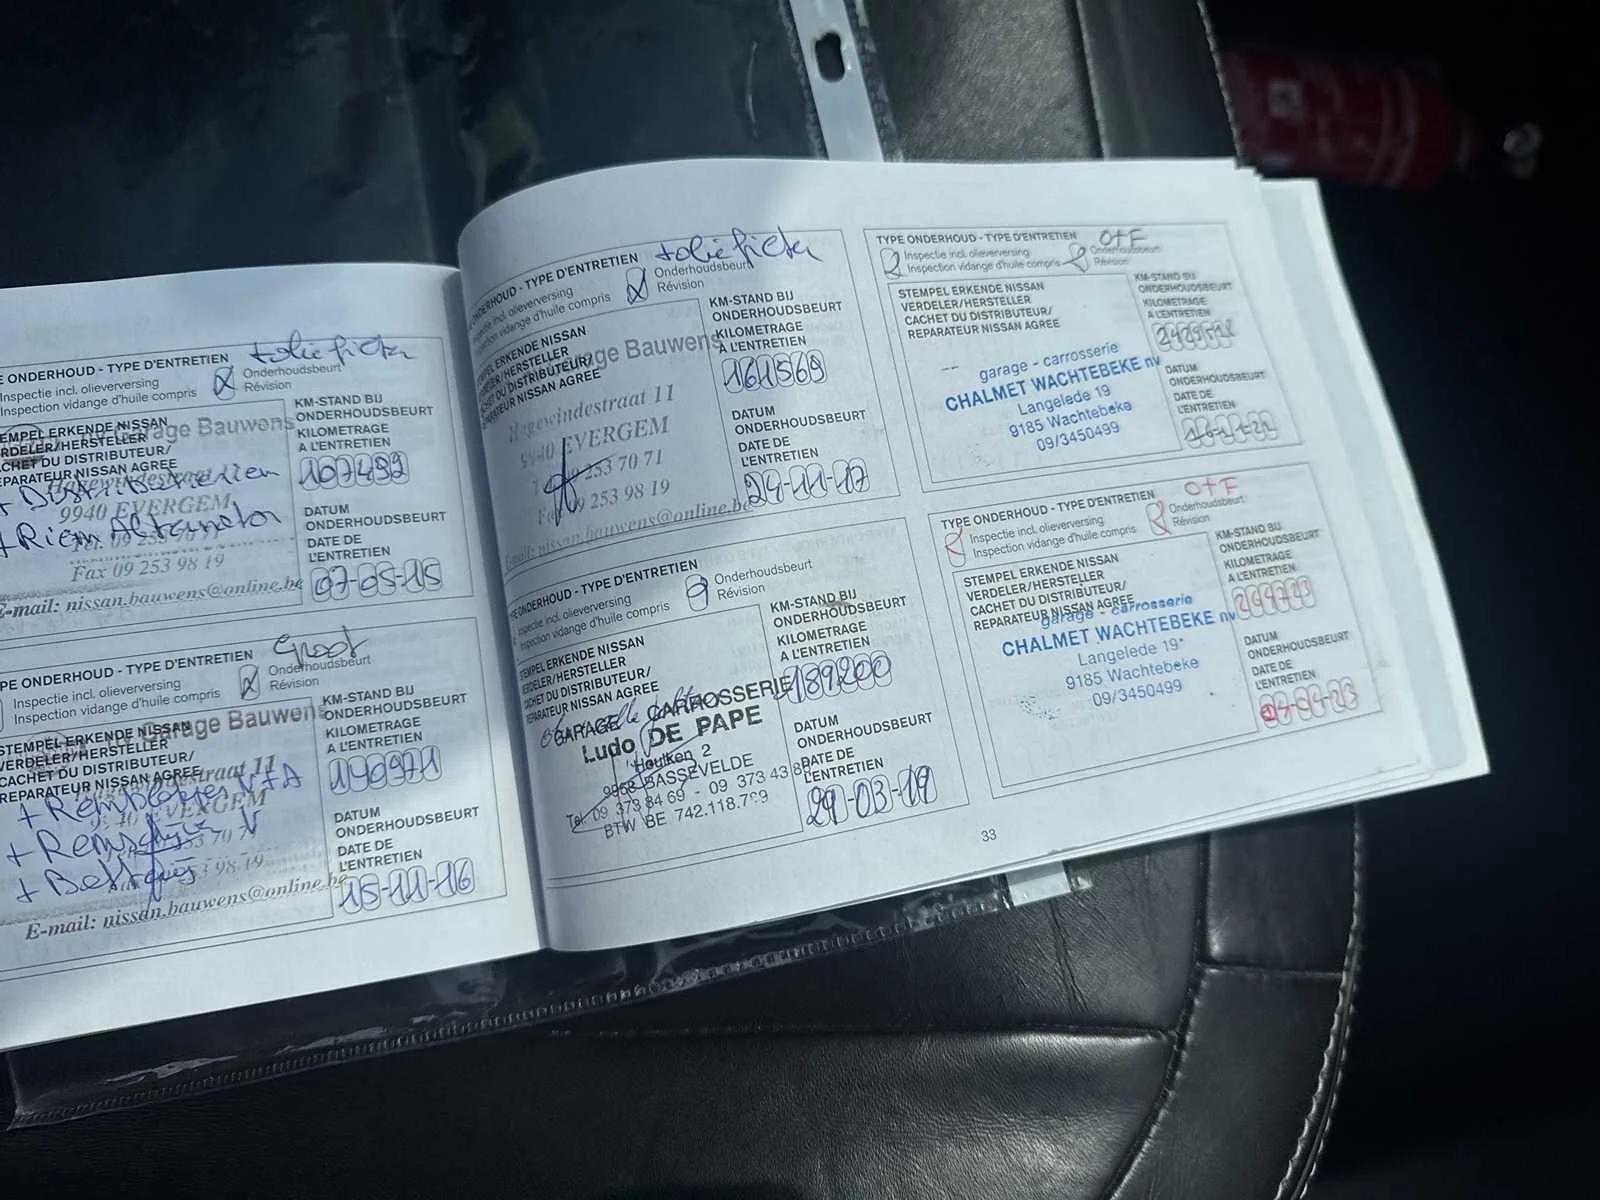 E ONDERHOUD - TYPE D'ENTRETIEN
Inspectie incl. olieverversing
Inspection vidange d'huile compris
Onderhoudsbeurt
Révision
EMPEL ERKENDE NISSAN
ERDELER/HERSTELLER
CACHET DU DISTRIBUTEUR/
EPARATEUR NISSAN AGREE
Garage Bauwens
9940 EVERGEM
Fax 09 253 98 19
E-mail: nissan.bauwens@online.be
+ Riem Alternator
KM-STAND BIJ
ONDERHOUDSBEURT
KILOMETRAGE
A L'ENTRETIEN
107492
DATUM
ONDERHOUDSBEURT
DATE DE
L'ENTRETIEN
07-05-15
PE ONDERHOUD - TYPE D'ENTRETIEN
Groot
Inspectie incl. olieverversing
Inspection vidange d'huile compris
Onderhoudsbeurt
Révision
STEMPEL ERKENDE NISSAN
VERDELER/HERSTELLER
CACHET DU DISTRIBUTEUR/
REPARATEUR NISSAN AGREE
Garage Bauwens
E-mail: nissan.bauwens@online.be
KM-STAND BIJ
ONDERHOUDSBEURT
KILOMETRAGE
A L'ENTRETIEN
140971
DATUM
ONDERHOUDSBEURT
DATE DE
L'ENTRETIEN
15-11-16
ONDERHOUD - TYPE D'ENTRETIEN
Inspectie incl. olieverversing
Inspection vidange d'huile compris
Onderhoudsbeurt
Révision
STEMPEL ERKENDE NISSAN
VERDELER/HERSTELLER
CACHET DU DISTRIBUTEUR/
REPARATEUR NISSAN AGREE
Garage Bauwens
Hagewindestraat 11
9940 EVERGEM
09 253 70 71
Fax 09 253 98 19
E-mail: nissan.bauwens@online.be
KM-STAND BIJ
ONDERHOUDSBEURT
KILOMETRAGE
A L'ENTRETIEN
161569
DATUM
ONDERHOUDSBEURT
DATE DE
L'ENTRETIEN
24-11-17
TYPE ONDERHOUD - TYPE D'ENTRETIEN
Inspectie incl. olieverversing
Inspection vidange d'huile compris
Onderhoudsbeurt
Révision
STEMPEL ERKENDE NISSAN
VERDELER/HERSTELLER
CACHET DU DISTRIBUTEUR/
REPARATEUR NISSAN AGREE
GARAGE CARROSSERIE
Ludo DE PAPE
Houtken 2
9968 BASSEVELDE
Tel. 09 373 84 69 - 09 373 43 8
BTW BE 742.118.799
KM-STAND BIJ
ONDERHOUDSBEURT
KILOMETRAGE
A L'ENTRETIEN
189200
DATUM
ONDERHOUDSBEURT
DATE DE
L'ENTRETIEN
29-03-19
TYPE ONDERHOUD - TYPE D'ENTRETIEN
O+F
Inspectie incl. olieverversing
Inspection vidange d'huile compris
Onderhoudsbeurt
Révision
STEMPEL ERKENDE NISSAN
VERDELER/HERSTELLER
CACHET DU DISTRIBUTEUR/
REPARATEUR NISSAN AGREE
garage - carrosserie
CHALMET WACHTEBEKE nv
Langelede 19
9185 Wachtebeke
09/3450499
KM-STAND BIJ
ONDERHOUDSBEURT
KILOMETRAGE
A L'ENTRETIEN
DATUM
ONDERHOUDSBEURT
DATE DE
L'ENTRETIEN
TYPE ONDERHOUD - TYPE D'ENTRETIEN
O+F
Inspectie incl. olieverversing
Inspection vidange d'huile compris
Onderhoudsbeurt
Révision
STEMPEL ERKENDE NISSAN
VERDELER/HERSTELLER
CACHET DU DISTRIBUTEUR/
REPARATEUR NISSAN AGREE
garage - carrosserie
CHALMET WACHTEBEKE nv
Langelede 19
9185 Wachtebeke
09/3450499
KM-STAND BIJ
ONDERHOUDSBEURT
KILOMETRAGE
A L'ENTRETIEN
DATUM
ONDERHOUDSBEURT
DATE DE
L'ENTRETIEN
33